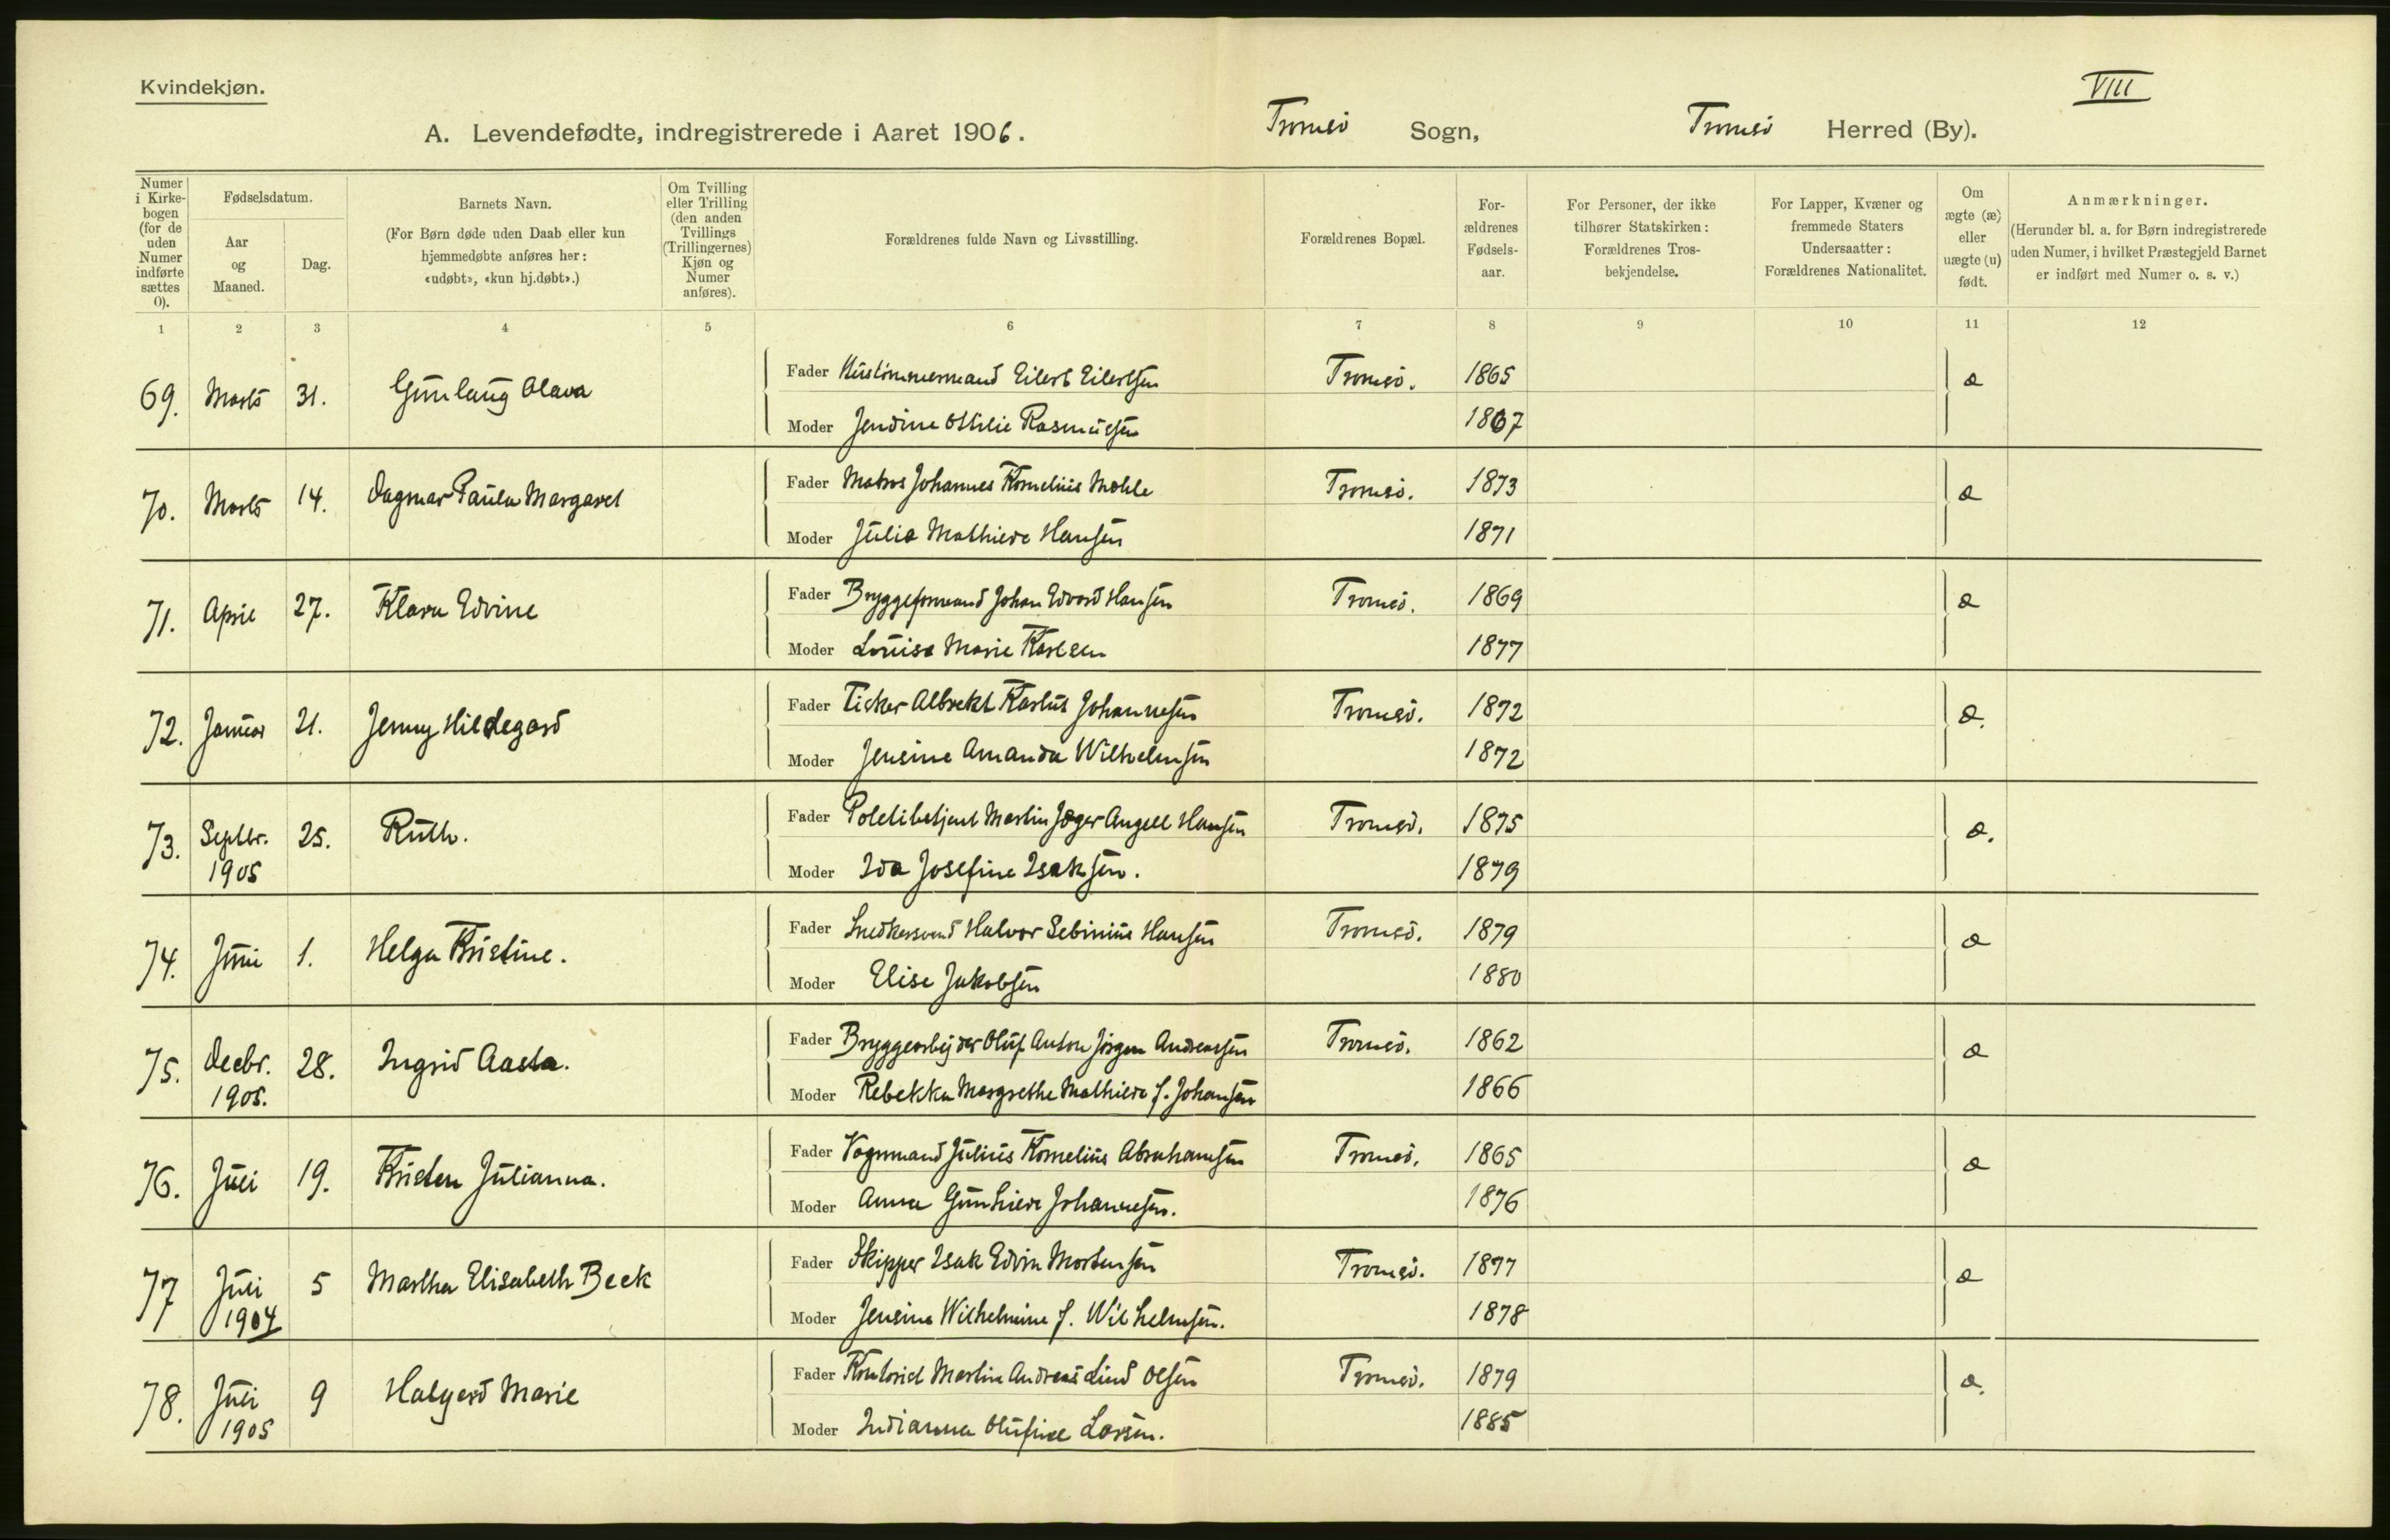 Kvindekjøn.
VIII
A. Levendefødte, indregistrerede i Aaret 1906. Tromsö Sogn, Tromsö Herred (By).
Numer i Kirkebogen (for de uden Numer indførte sættes 0).
Fødselsdatum.
Aar og Maaned.
Dag.
Barnets Navn.
(For Børn døde uden Daab eller kun hjemmedøbte anføres her: «udøbt», «kun hj.døbt».)
Om Tvilling eller Trilling (den anden Tvillings (Trillingernes) Kjøn og Numer anføres).
Forældrenes fulde Navn og Livsstilling.
Forældrenes Bopæl.
Forældrenes Fødselsaar.
For Personer, der ikke tilhører Statskirken: Forældrenes Trosbekjendelse.
For Lapper, Kvæner og fremmede Staters Undersaatter: Forældrenes Nationalitet.
Om ægte (æ) eller uægte (u) født.
Anmærkninger.
(Herunder bl. a. for Børn indregistrerede uden Numer, i hvilket Præstegjeld Barnet er indført med Numer o. s. v.)
1 2 3 4 5 6 7 8 9 10 11 12
69. Marts 31. Gunlaug Olava Fader Hustömmermand Eilert Eilertsen Tromsö. 1865 æ
Moder Jendine Ottilie Rasmussen 1867
70. Marts 14. Dagmar Paula Margaret Fader Matros Johannes Kornelius Mohle Tromsö. 1873 æ
Moder Julie Mathilde Hansen 1871
71. April 27. Klara Edvine Fader Bryggeformand Johan Edvard Hansen Tromsö. 1869 æ
Moder Louise Marie Karlsen 1877
72. Januar 21. Jenny Hildegard Fader Fisker Albrekt Kastus Johannesen Tromsö. 1872 æ.
Moder Jensine Amanda Wilhelmsen 1872
73. Septbr. 1905 25. Ruth. Fader Politibetjent Martin Jæger Angell Hansen Tromsö. 1875 æ.
Moder Ida Josefine Isaksen. 1879
74. Juni 1. Helga Kristine. Fader Snedkersvend Halvor Sebinius Hansen Tromsö. 1879 æ
Moder Elise Jakobsen 1880
75. Decbr. 1905. 28. Ingrid Aasta. Fader Bryggearbejder Oluf Anton Jörgen Andreassen Tromsö. 1862 æ
Moder Rebekka Margrethe Mathilde f. Johansen 1866
76. Juli 19. Kristen Julianna. Fader Vognmand Julius Kornelius Abrahamsen Tromsö. 1865 æ
Moder Anna Gunhilde Johannesen. 1876
77 Juli 1904 5 Martha Elisabeth Beck Fader Skipper Isak Edvin Mortensen Tromsö. 1877 æ
Moder Jensine Wilhelmine f. Wilhelmsen. 1878
78. Juli 1905 9 Halgerd Marie Fader Kontorist Martin Andreas Lind Olsen Tromsö. 1879 æ.
Moder Indianna Olufine Larsen. 1885